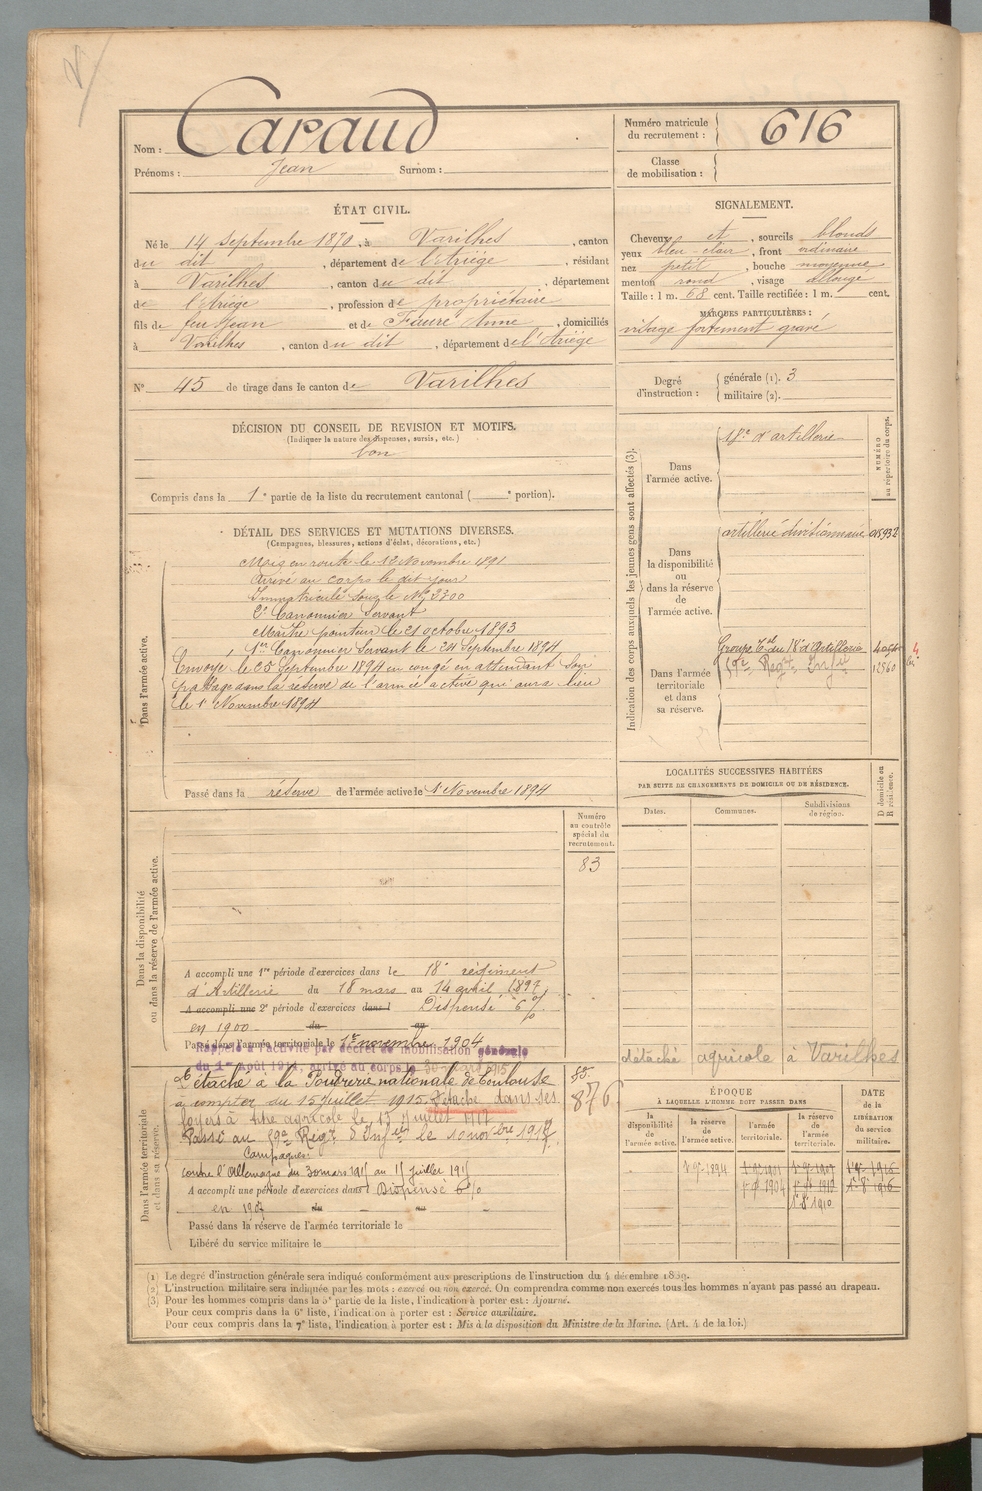 Nom : Caraud
Prénoms : Jean Surnom :
Numéro matricule du recrutement : 616
Classe de mobilisation :
ÉTAT CIVIL.
Né le 14 Septembre 1870, à Varilhes, canton
du dit, département de l'Ariège, résidant
à Varilhes, canton du dit, département
de l'Ariège, profession de propriétaire
fils de feu Jean et de Faure Anne, domiciliés
à Varilhes, canton du dit, département de l'Ariège
N° 45 de tirage dans le canton de Varilhes
SIGNALEMENT.
Cheveux et, sourcils blonds
yeux bleu-clair, front ordinaire
nez petit, bouche moyenne
menton rond, visage allongé
Taille : 1 m. 68 cent. Taille rectifiée : 1 m. cent.
MARQUES PARTICULIÈRES :
visage fortement gravé
Degré d'instruction : générale (1). 3
militaire (2).
DÉCISION DU CONSEIL DE REVISION ET MOTIFS.
(Indiquer la nature des dispenses, sursis, etc.)
bon
Compris dans la 1e partie de la liste du recrutement cantonal ( e portion).
DÉTAIL DES SERVICES ET MUTATIONS DIVERSES.
(Campagnes, blessures, actions d'éclat, décorations, etc.)
Dans l'armée active.
Mis en route le 12 Novembre 1891
Arrivé au corps le dit jour
Immatriculé sous le N° 3300
2e Canonnier Servant
Maître pointeur le 21 octobre 1893
1er Canonnier Servant le 24 Septembre 1894
Envoyé le 25 Septembre 1894 en congé en attendant son
passage dans la réserve de l'armée active qui aura lieu
le 1er Novembre 1894
Passé dans la réserve de l'armée active le 1er Novembre 1894
Indication des corps auxquels les jeunes gens sont affectés (3).
NUMÉRO au répertoire du corps.
Dans l'armée active.
18e d'artillerie
Dans la disponibilité ou dans la réserve de l'armée active.
artillerie divisionnaire
Dans l'armée territoriale et dans sa réserve.
Groupe Tal du 18e d'Artillerie
Regt Infie
12560
LOCALITÉS SUCCESSIVES HABITÉES
PAR SUITE DE CHANGEMENTS DE DOMICILE OU DE RÉSIDENCE.
Dates. Communes. Subdivisions de région. D domicile ou R résidence.
détaché agricole à Varilhes
Dans la disponibilité ou dans la réserve de l'armée active.
Numéro au contrôle spécial du recrutement.
83
A accompli une 1re période d'exercices dans le 18e régiment
d'Artillerie du 18 mars au 14 avril 1897
A accompli une 2e période d'exercices dans l Dispensé 6 %
en 1900 du au
Passé dans l'armée territoriale le 1er novembre 1904
Rappelé à l'activité par décret de mobilisation générale
du 1er Août 1914, arrivé au corps le 30 mars 1915
Dans l'armée territoriale et dans sa réserve.
876
Détaché à la Poudrerie nationale de Toulouse
à compter du 15 Juillet 1915. Détaché dans ses
foyers à titre agricole le 13 Juillet 1917
Passé au Regt d'Infie le 10 novbre 1917
Campagnes:
contre l'Allemagne du 30 mars 1915 au 15 juillet 1915
A accompli une période d'exercices dans l Dispensé 6 %
en 1907 du au
Passé dans la réserve de l'armée territoriale le
Libéré du service militaire le
ÉPOQUE
À LAQUELLE L'HOMME DOIT PASSER DANS
DATE de la LIBÉRATION du service militaire.
la disponibilité de l'armée active. la réserve de l'armée active. l'armée territoriale. la réserve de l'armée territoriale.
1er 9bre 1894
(1) Le degré d'instruction générale sera indiqué conformément aux prescriptions de l'instruction du 4 décembre 1889.
(2) L'instruction militaire sera indiquée par les mots : exercé ou non exercé. On comprendra comme non exercés tous les hommes n'ayant pas passé au drapeau.
(3) Pour les hommes compris dans la 5e partie de la liste, l'indication à porter est : Ajourné.
Pour ceux compris dans la 6e liste, l'indication à porter est : Service auxiliaire.
Pour ceux compris dans la 7e liste, l'indication à porter est : Mis à la disposition du Ministre de la Marine. (Art. 4 de la loi.)